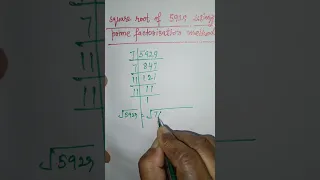 square root of 5929 using
prime factorization method
7 | 5929
7 | 847
11 | 121
11 | 11
1
√5929 = √7